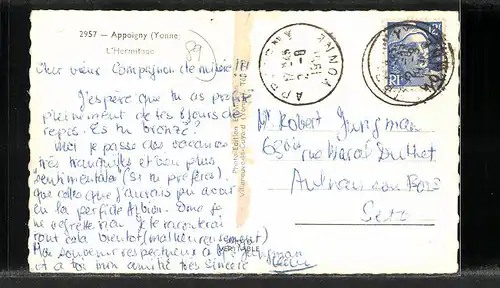 2957 - Appoigny (Yonne)
L'Hermitage
89
Cher vieux Compagnon de misère !!!
J'espère que tu as profité
pleinement de tes jours de
repos. Es tu bronzé?
Moi je passe des vacances
très tranquilles et bien plus
sentimentales (si tu préfères).
que celles que j'aurais pu avoir
en la perfide Albion. Donc je
ne regrette rien. Je te raconterai
tout cela bientôt (malheureusement)
Mon souvenir respectueux à
et à toi mon amitié très sincère
Photo-Edition
VERITABLE
APPOIGNY
YONNE
17H45
2 -8
1951
APPOIGNY
YONNE
12F
RF
Mr Robert Jungman
rue Marcel Duthet
Aulnay sous Bois